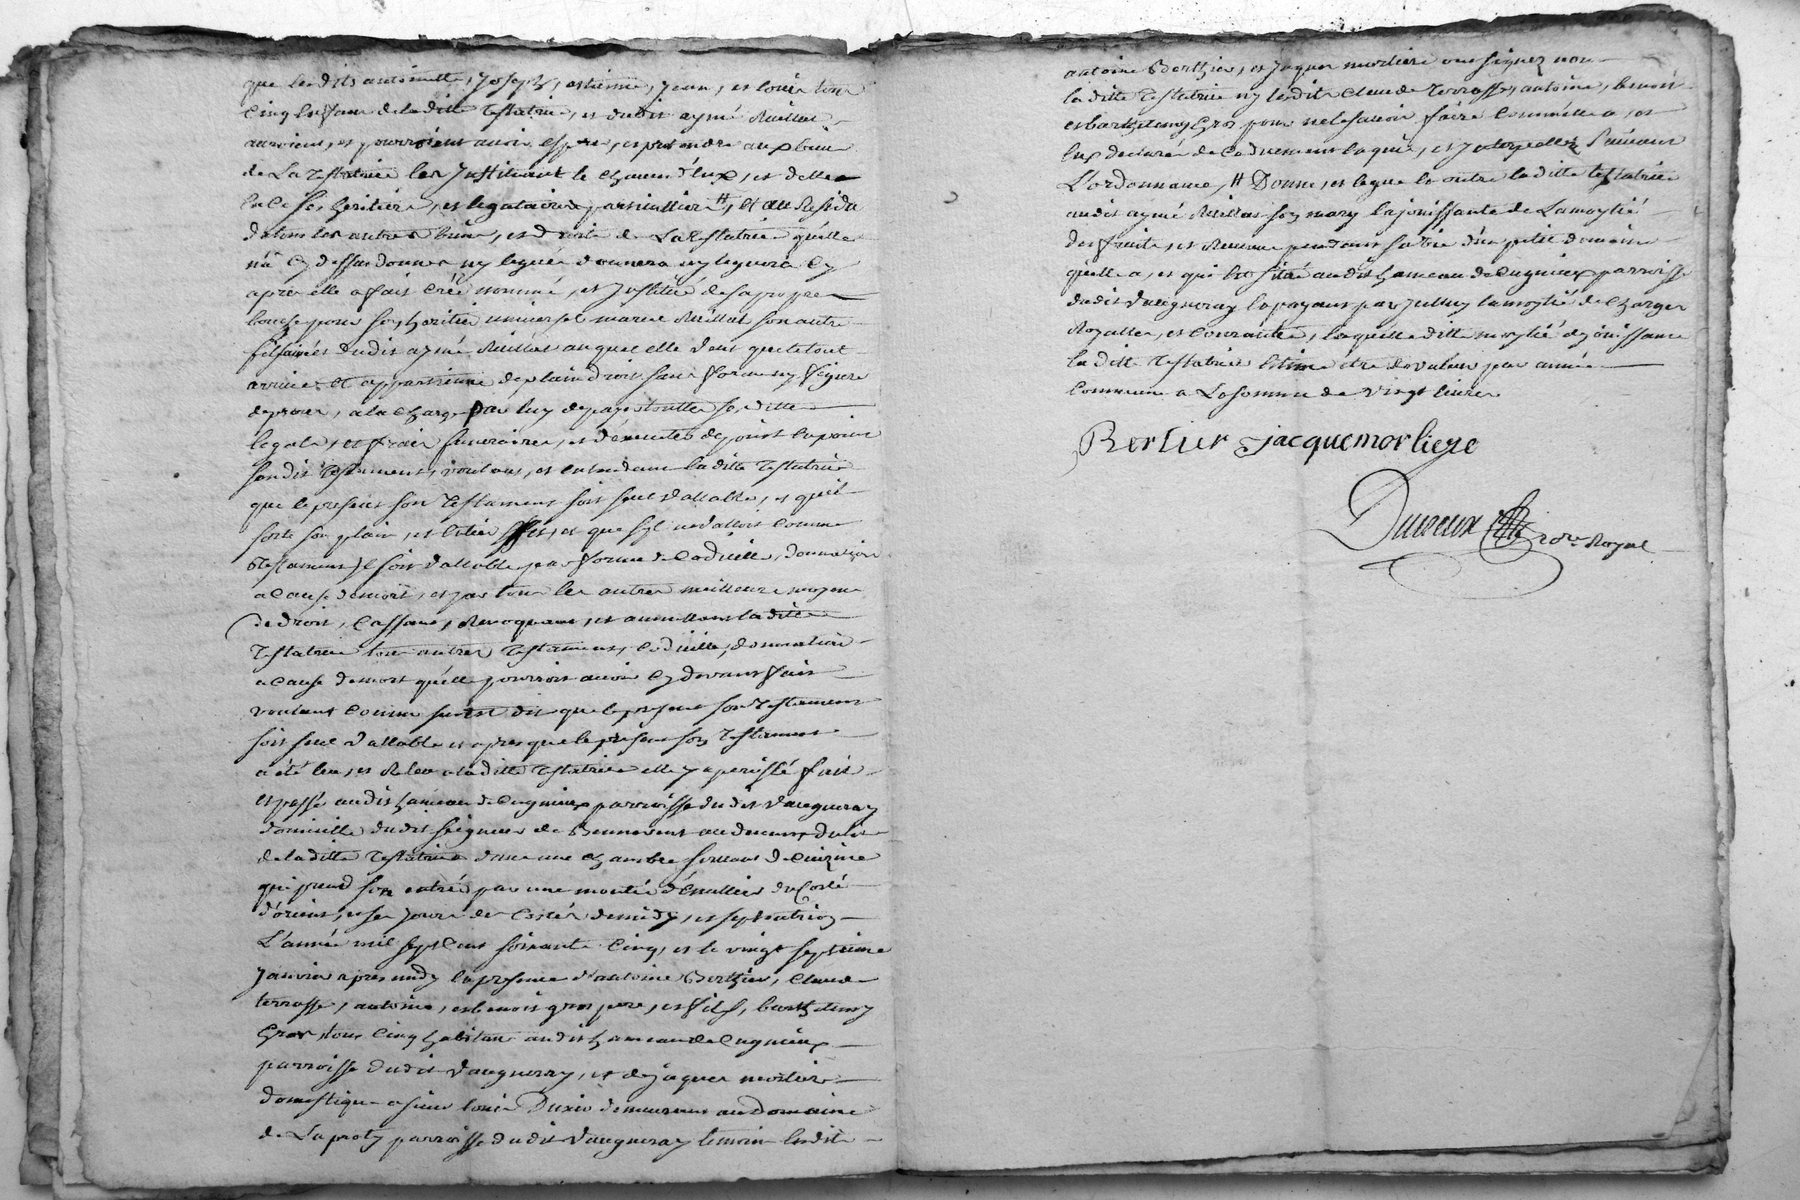 que lesdits antoinette, Joseph, estienne, Jean, et louis tous
Cinq Enfans de laditte Testatrice, et dudit aymé Ruillat
auroient, et pourroient avoir, esperer, et pretendre aux biens
de La Testatrice les Jnstituant le chacun d'eux, et d'elles
en ce ses heritiers, et legataires particulliers #, Et au Residu
de tous les autres biens, et droits de La Testatrice qu'elle
n'a Cy dessus donnés ny legués donnera ny leguera Cy
apres elle a fait Créé nommé, et Jnstitué de sa propre
bouche pour son heritier universel marie Ruillat son autre
fils ainé et dudit aymé Ruillat auquel elle veut que le tout
arrive et appartienne de plain droit sans forme ny figure
de proces, a la charge par luy de payer touttes ses dittes
legats, et frais funeraires, et d'executer de point en point
sondit testament, voulant, et entendant laditte Testatrice
que le present son Testament soit seul vallable, et qu'il
sorte son plain, et Entier Effet, et que s'il ne valloit comme
Testament Jl soit vallable par forme de Codicille, donnation
a Cause de mort, et par tous les autres meilleurs moyens
de droit, Cassant, Revoquant, et annullant laditte
Testatrice tous autres Testaments, Codicille, donnation
a Cause de mort qu'elle pourroit avoir Cy devant fait
voulant Comme sus est dit que le present son Testament
soit seul vallable et apres que le present son Testament
a été leu, et Releu a laditte Testatrice elle y a persisté fait
et passé audit hameau de Cugnieux parroisse dudit vaugneray
domicille dudit seigneur de Benneveut au devant du lit
de laditte Testatrice dans une chambre servant de Cuizine
qui prend son entrée par une montée d'Escallier du Costé
d'orient, et ses jours des Costés de midy, et septentrion
L'année mil sept Cent soixante Cinq, et le vingt septieme
Janvier apres midy En presence d'antoine Berthier, Claude
terrasse, antoine, et benoit gros pere, et fils, barthelemy
Gros, tous Cinq habitans audit hameau de Cugnieux
parroisse dudit vaugneray, et de Jaques morliere
domestique a sieur louis Duxio demeurant au Domaine
de La proty parroisse dudit vaugneray temoins lesdits
antoine Berthier, et Jaques morliere ont signez non
laditte Testatrice ny lesdits Claude Terrasse, antoine, benoit
et barthelemy Gros pour ne le savoir faire Comme Elle a, et
Eux declarés de Ce duement Enquis, et Jnterpellez Suivant
L'ordonnance, # Donne, et legue En outre laditte testatrice
audit aymé Ruillat son mary la jouissante de La moytié
des fruits, et Revenus pendant sa vie d'un petit domaine
qu'elle a, et qui Est situé audit hameau de Cugnieux parroisse
dudit vaugneray En payant par Jcelluy la moytié des Charges
Royalles, et Courantes, laquelle ditte moytié de jouissance
laditte Testatrice Estime être de valeur par année
Commune a La somme de vingt livres
Bertier jacque morliere
Duvieux no.re Royal